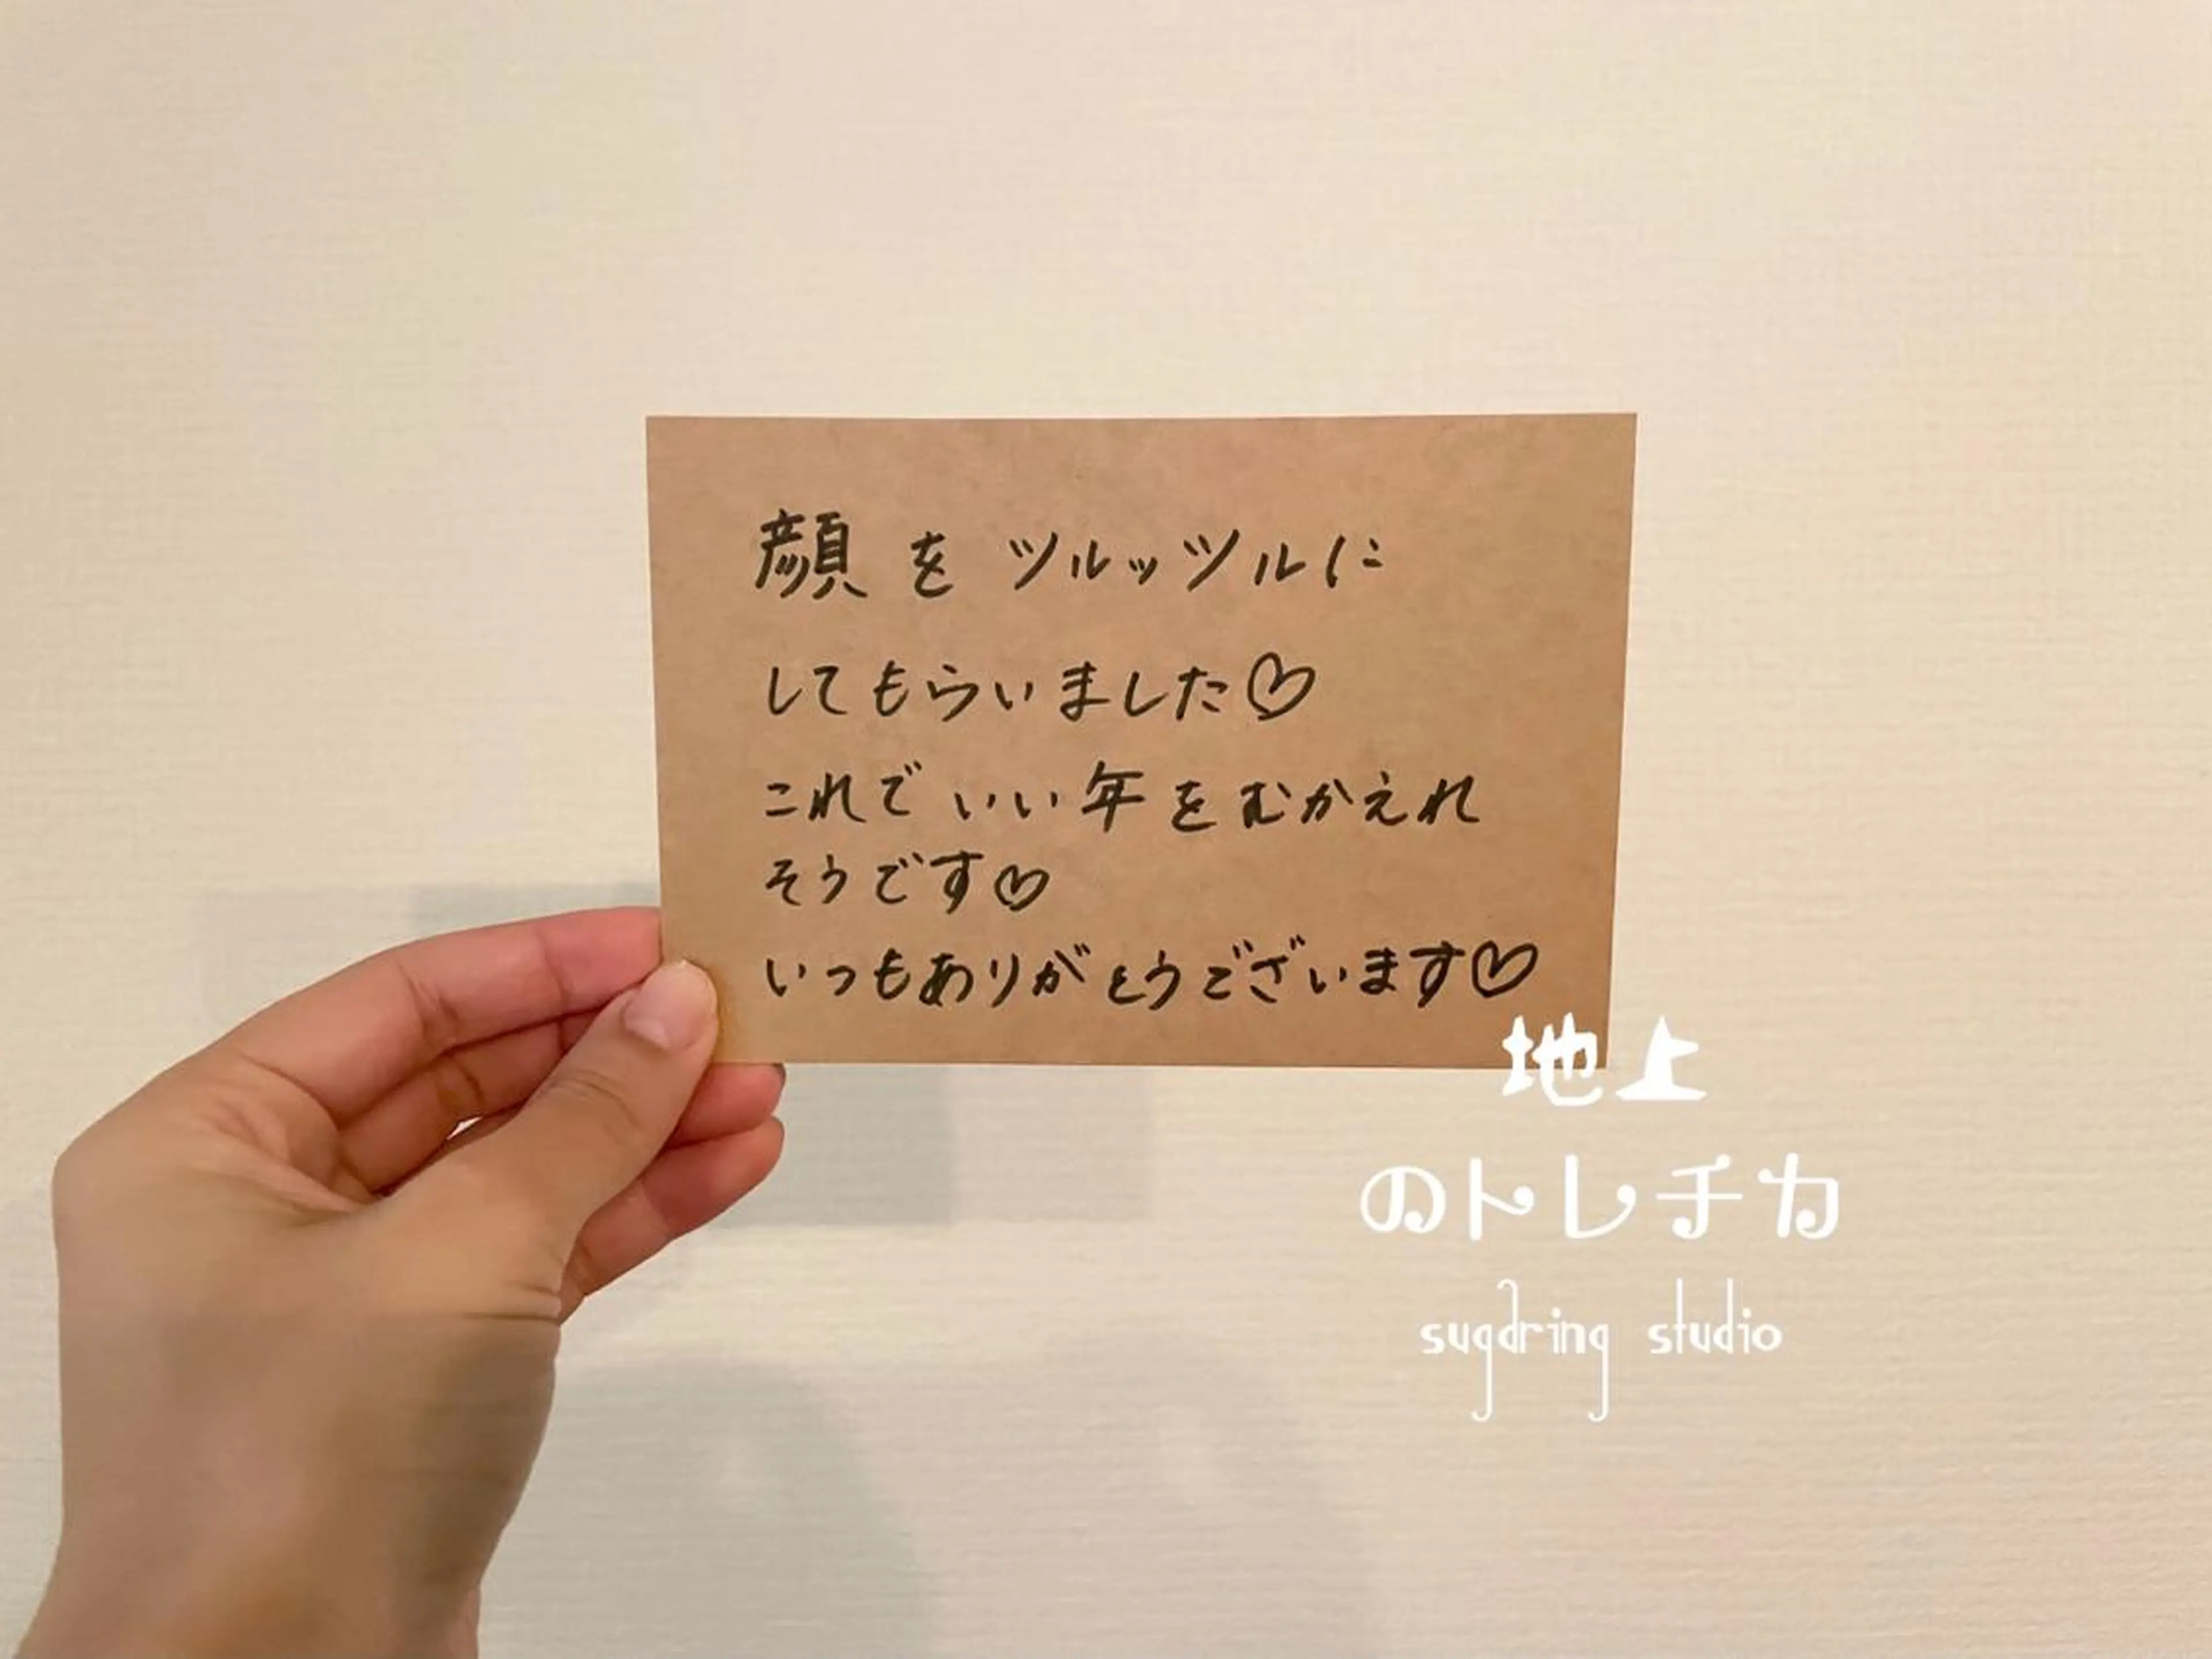 顔をツルッツルに
してもらいました♡
これでいい年をむかえれ
そうです♡
いつもありがとうございます♡
地上
のトレチカ
sugaring studio